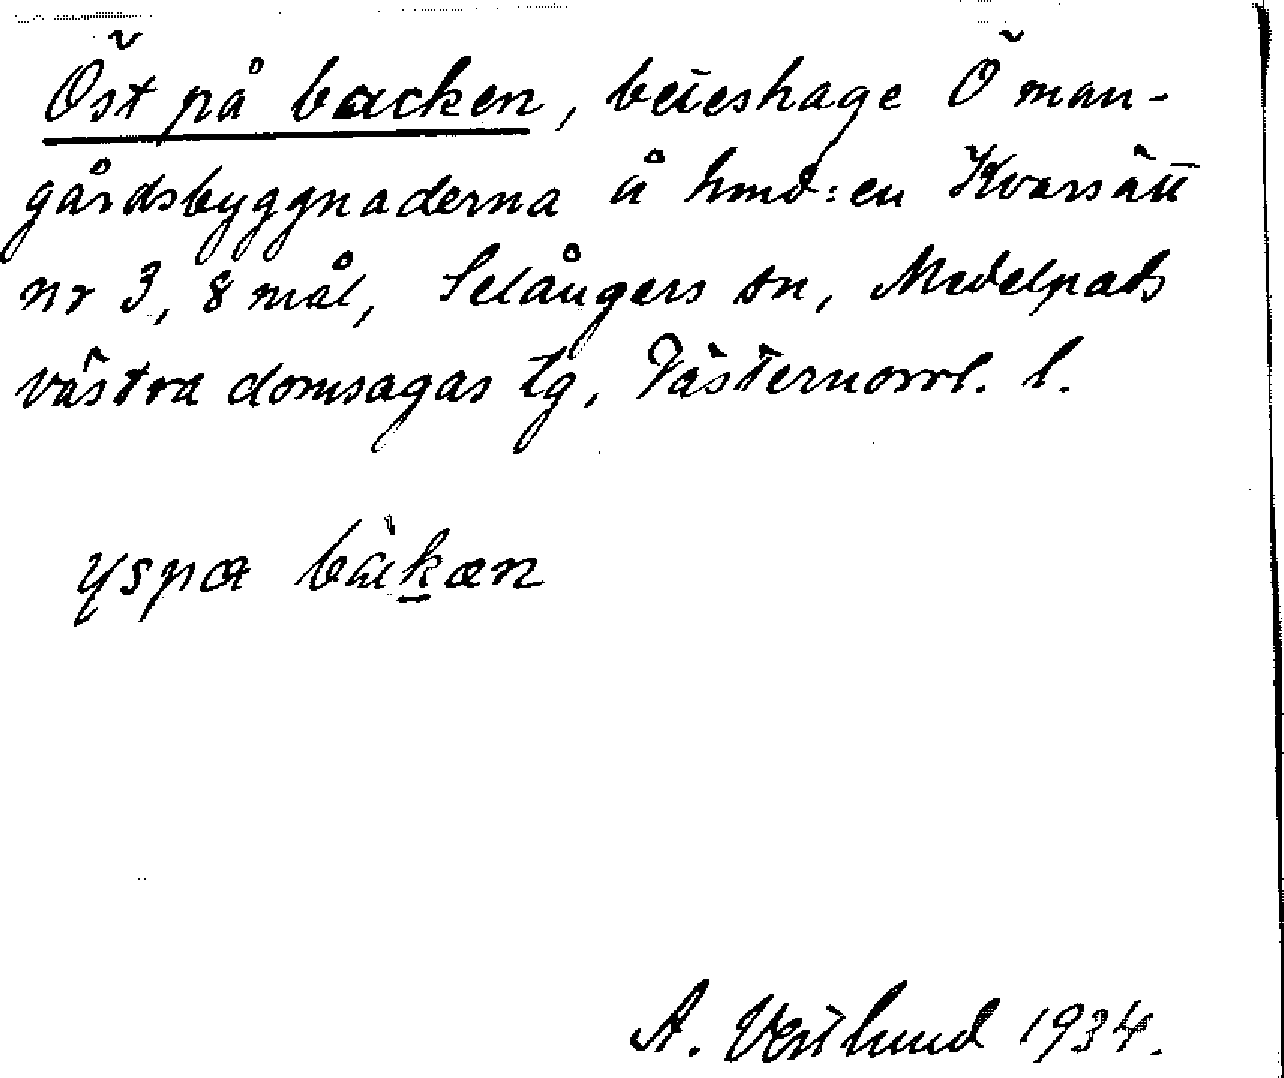 Öst på backen, beteshage Ö man-
gårdsbyggnaderna å hmd:en Kvarsätt
nr 3, 8 mål, Selångers sn, Medelpads
västra domsagas tg, Västernorrl. l.
yspa bäkan
A. Vestlund 1934.